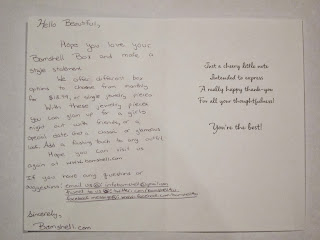 Hello Beautiful,
Hope you love your
Bomshell Box and make a
style statement.
We offer different box
options to choose from monthly
for $18.99, or single jewelry pieces
With these jewelry pieces
you can glam up for a girls
night out with friends, or a
special date. Add a charm or glamorous
look. Add a finishing touch to any outfit.
Hope you can visit us
again at
If you have any questions or
suggestions email us @
tweet to us @ twitter.com/
facebook message @ www.facebook.com/
Sincerely,
Bomshell.com
Just a cheery little note
Intended to express
A really happy thank-you
For all your thoughtfulness!
You're the best!